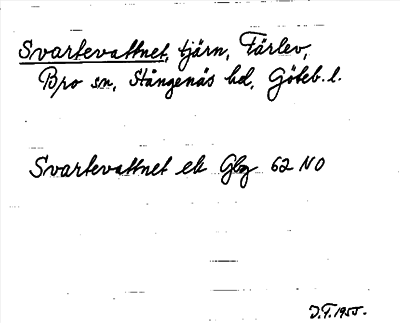 Svartevattnet, tjärn, Färlev,
Bro sn, Stångenäs hd, Göteb. l.
Svartevattnet ek Gbg 62 NO
J.F. 1955.